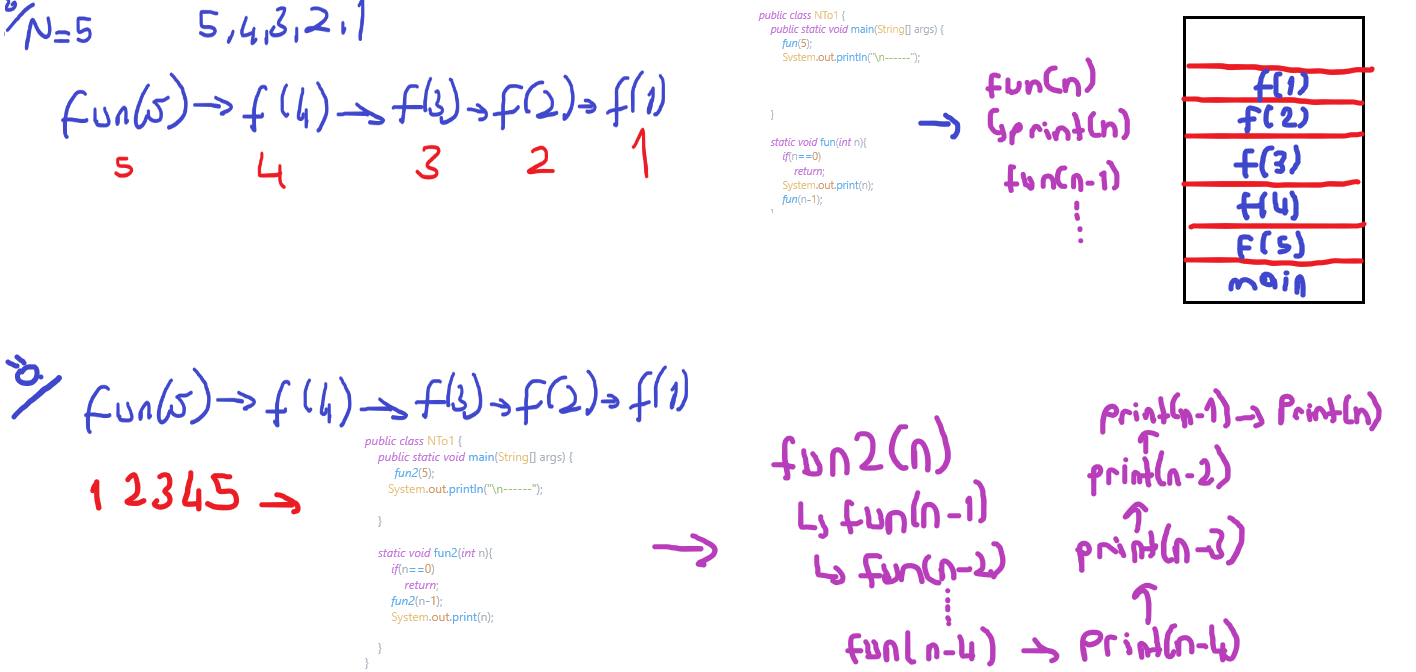 N=5 5,4,3,2,1
fun(5) → f(4) → f(3) → f(2) → f(1)
5 4 3 2 1
public class NTo1 {
public static void main(String[] args) {
fun(5);
System.out.println("\n------");
}
static void fun(int n){
if(n==0)
return;
System.out.print(n);
fun(n-1);
→
fun(n)
↳print(n)
fun(n-1)
f(1)
f(2)
f(3)
f(4)
f(5)
main
fun(5) → f(4) → f(3) → f(2) → f(1)
1 2 3 4 5 →
public class NTo1 {
public static void main(String[] args) {
fun2(5);
System.out.println("\n------");
}
static void fun2(int n){
if(n==0)
return;
fun2(n-1);
System.out.print(n);
}
}
→
fun2(n)
↳ fun(n-1)
↳ fun(n-2)
fun(n-4) → print(n-4)
↑
print(n-3)
↑
print(n-2)
↑
print(n-1) → print(n)